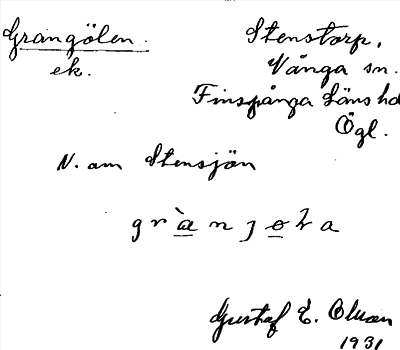 Grangölen. Stenstorp,
ek. Vånga sn.
Finspånga Läns hd
Ögl.
N. om Stensjön
Gustaf E. Olson
1931